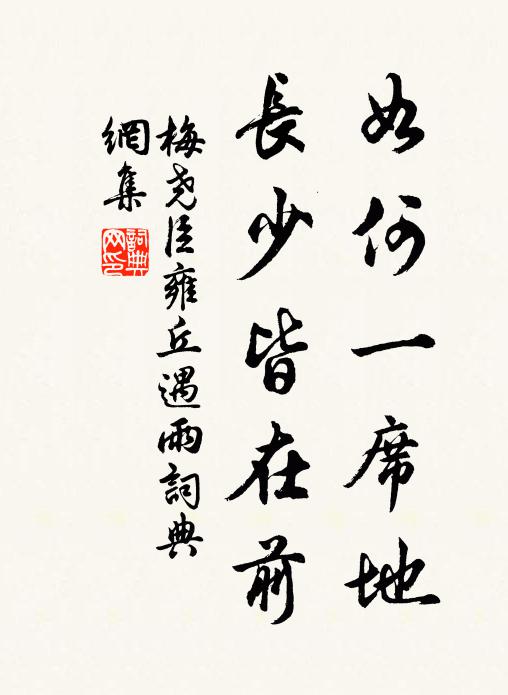 如何一席地
長少皆在前
梅尧臣雍丘遇雨詞典
網集
詞典
网印